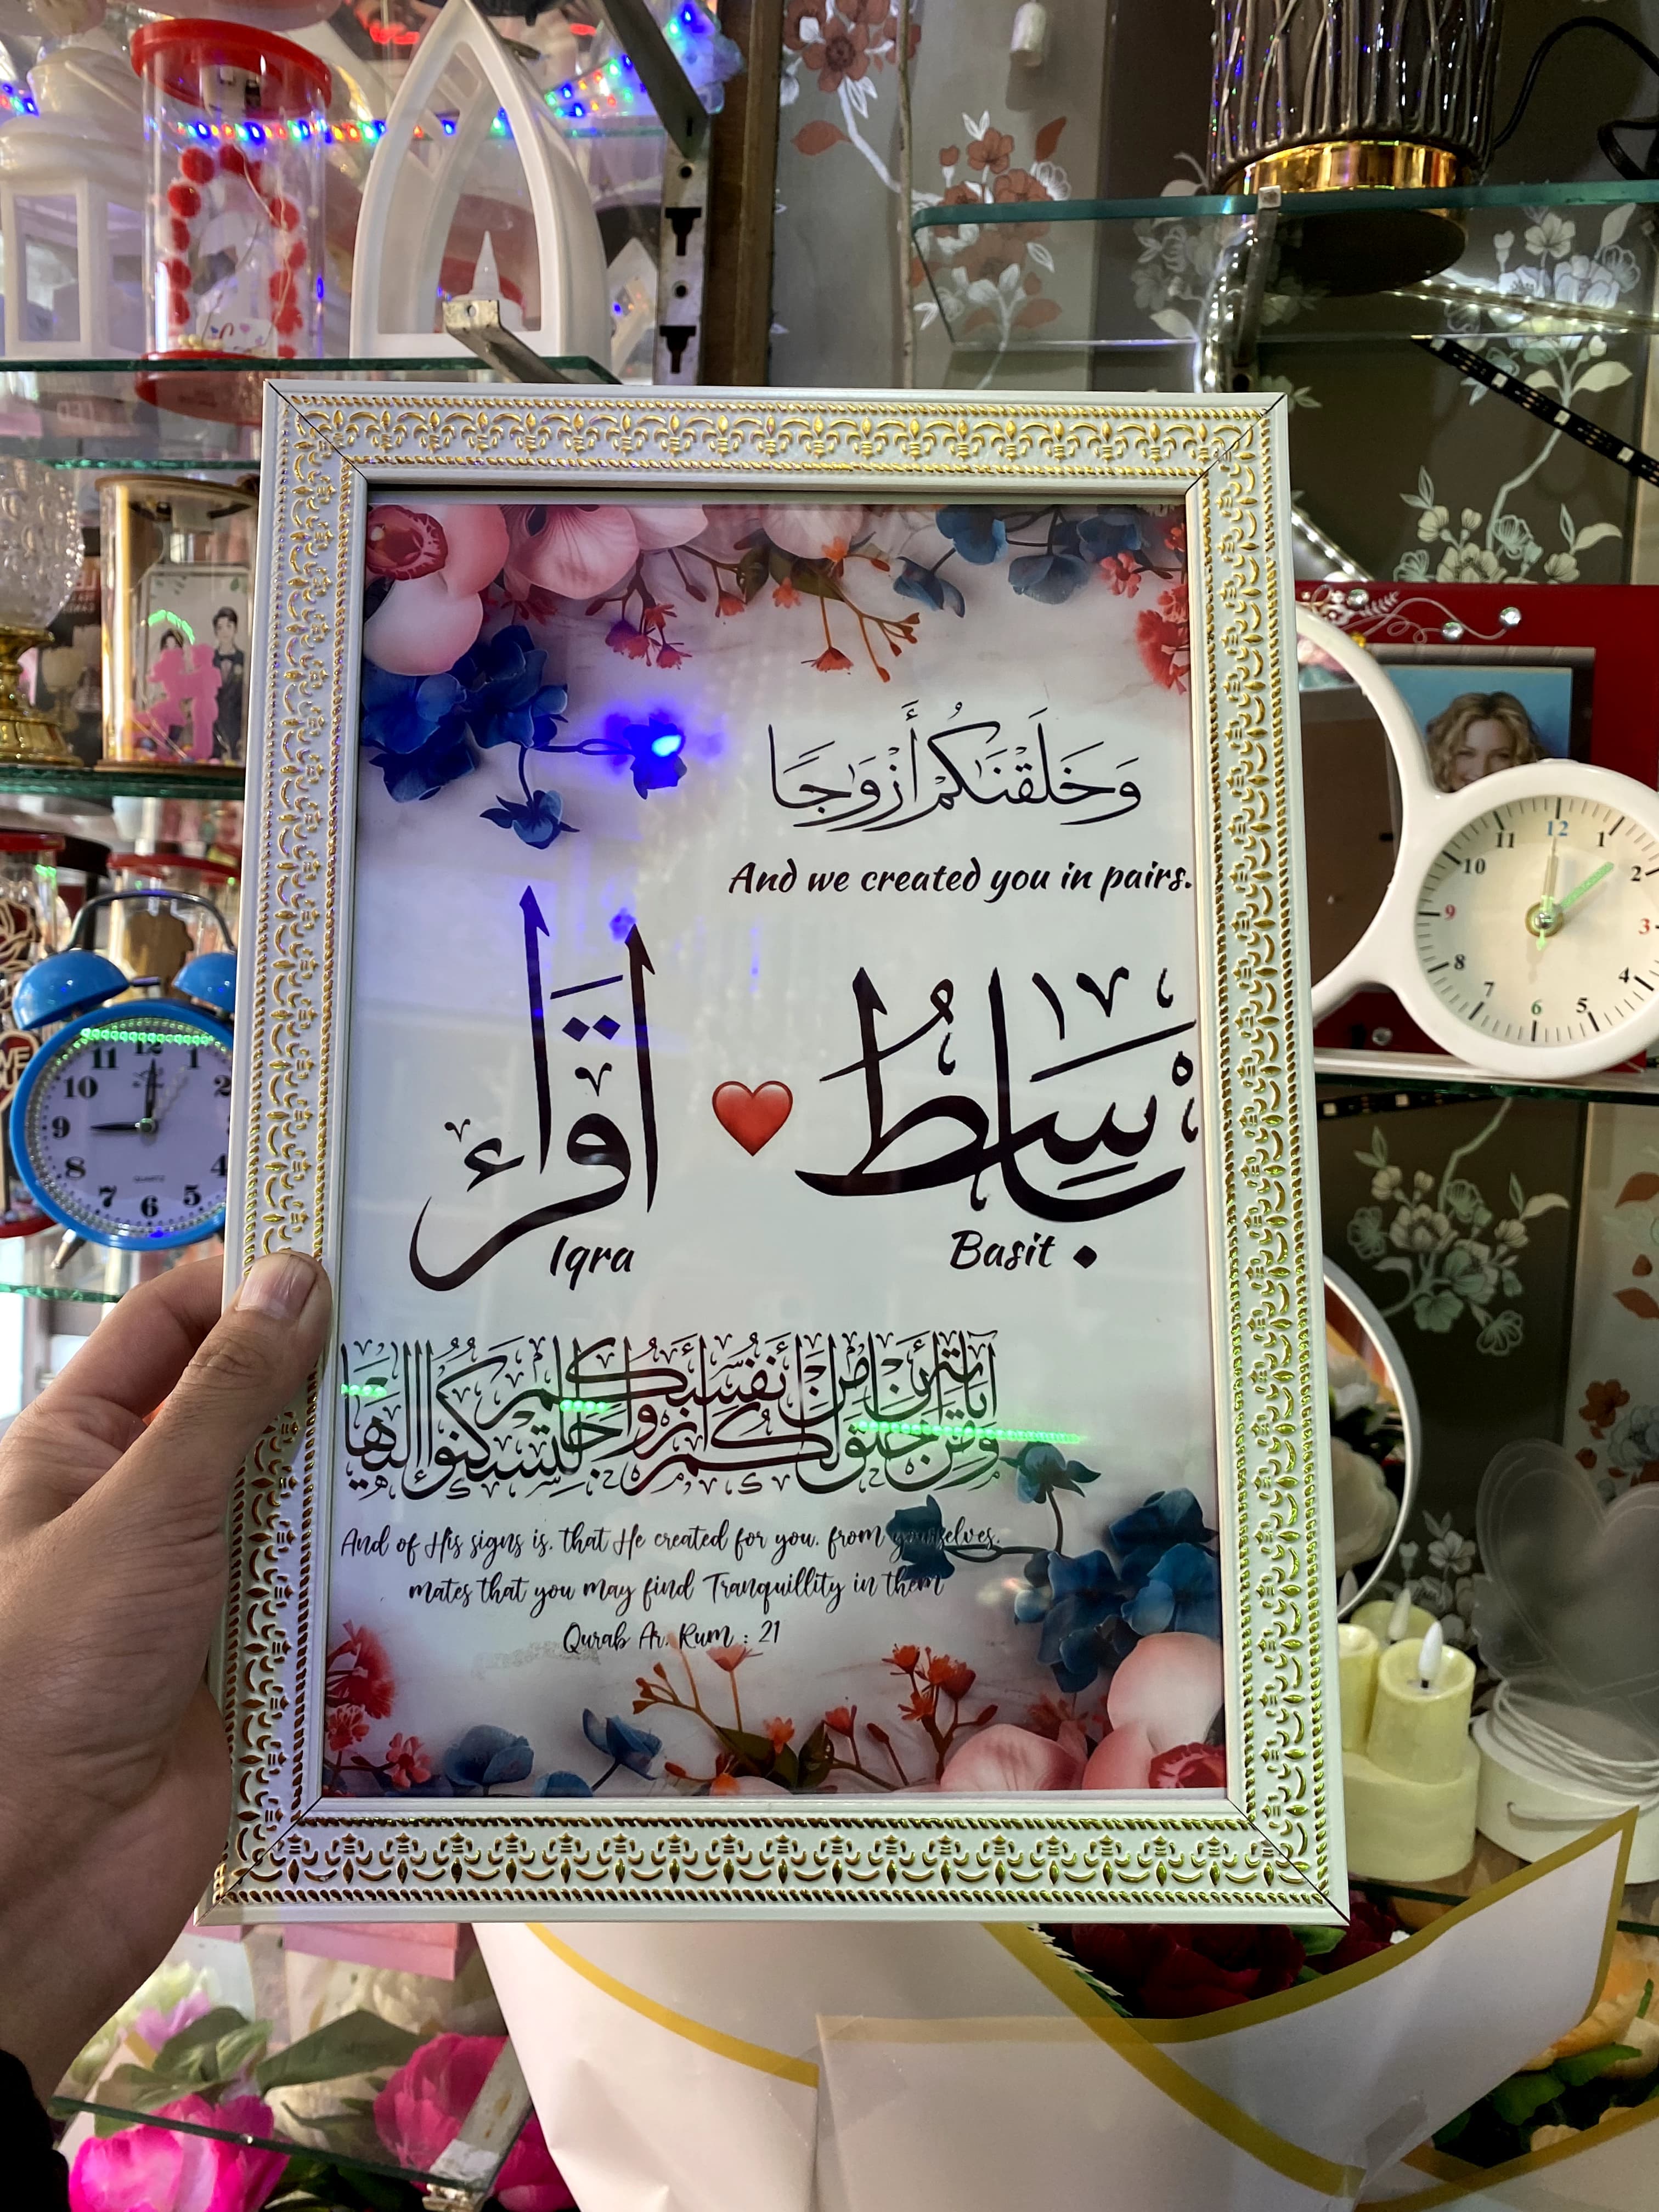 وَخَلَقْنَٰكُمْ أَزْوَٰجًا
And we created you in pairs.
اقراء ❤️ باسط
Iqra
Basit
ومن آياته أن خلق لكم من أنفسكم أزواجا لتسكنوا إليها
And of His signs is, that He created for you, from yourselves,
mates that you may find Tranquillity in them
Qurab Ar, Rum : 21
11 12 1
10 2
9
8 4
7 6 5
QUARTZ
11 12 1
10 2
9 3
8 4
7 6 5